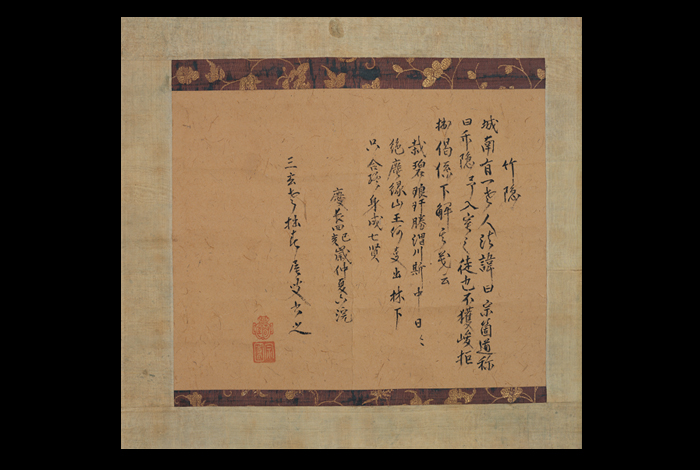 竹隠
城南有一老人法諱曰宗箇道称
曰竹隠予入室之徒也不獲峻拒
偈係下解其義云
栽碧琅玕勝渭川斯中日々
絶塵縁山王何事出林下
只合身成七賢
慶長四己亥歳仲夏浣
三玄老拙春屋叟書之